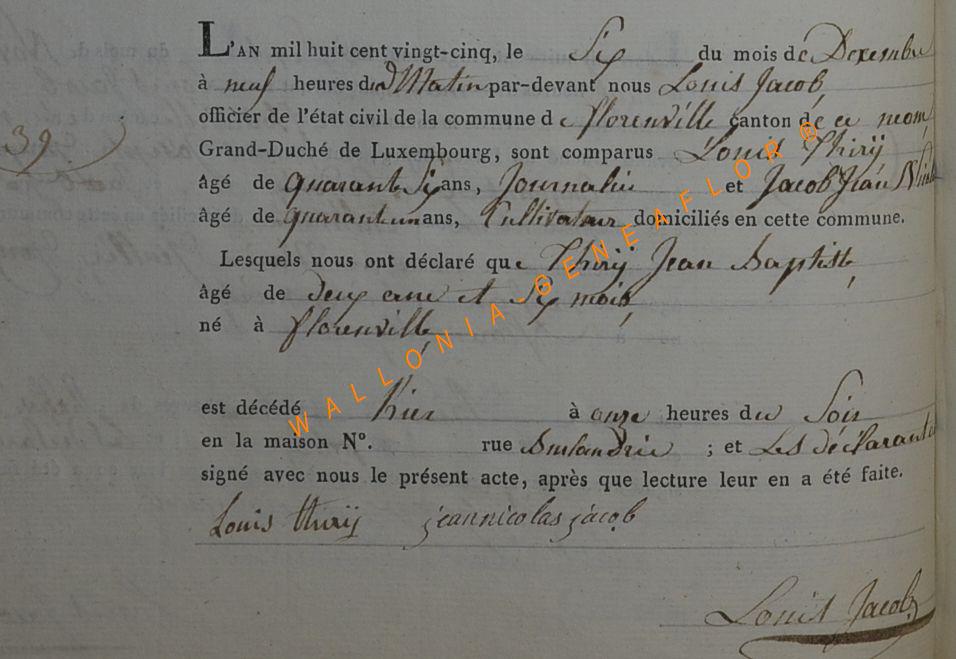 L'AN mil huit cent vingt-cinq, le Six du mois de Dexembre
à neuf heures du Matin par-devant nous Louis Jacob,
officier de l'état civil de la commune de florenville canton de ce nom,
39.
Grand-Duché de Luxembourg, sont comparus Louis Thirÿ
âgé de quarant Six ans, Journalier et Jacob Jean
âgé de quarantunans, Cultivateur domiciliés en cette commune.
Lesquels nous ont déclaré que Thirÿ Jean Baptiste,
âgé de deux ans et Six mois,
né à florenville,
est décédé hier à onze heures du Soir
en la maison N°. rue ; et Les déclarants
signé avec nous le présent acte, après que lecture leur en a été faite.
Louis thirÿ jeannicolas jacob
Louis Jacob,
WALLONIA-GENEAFLOR®